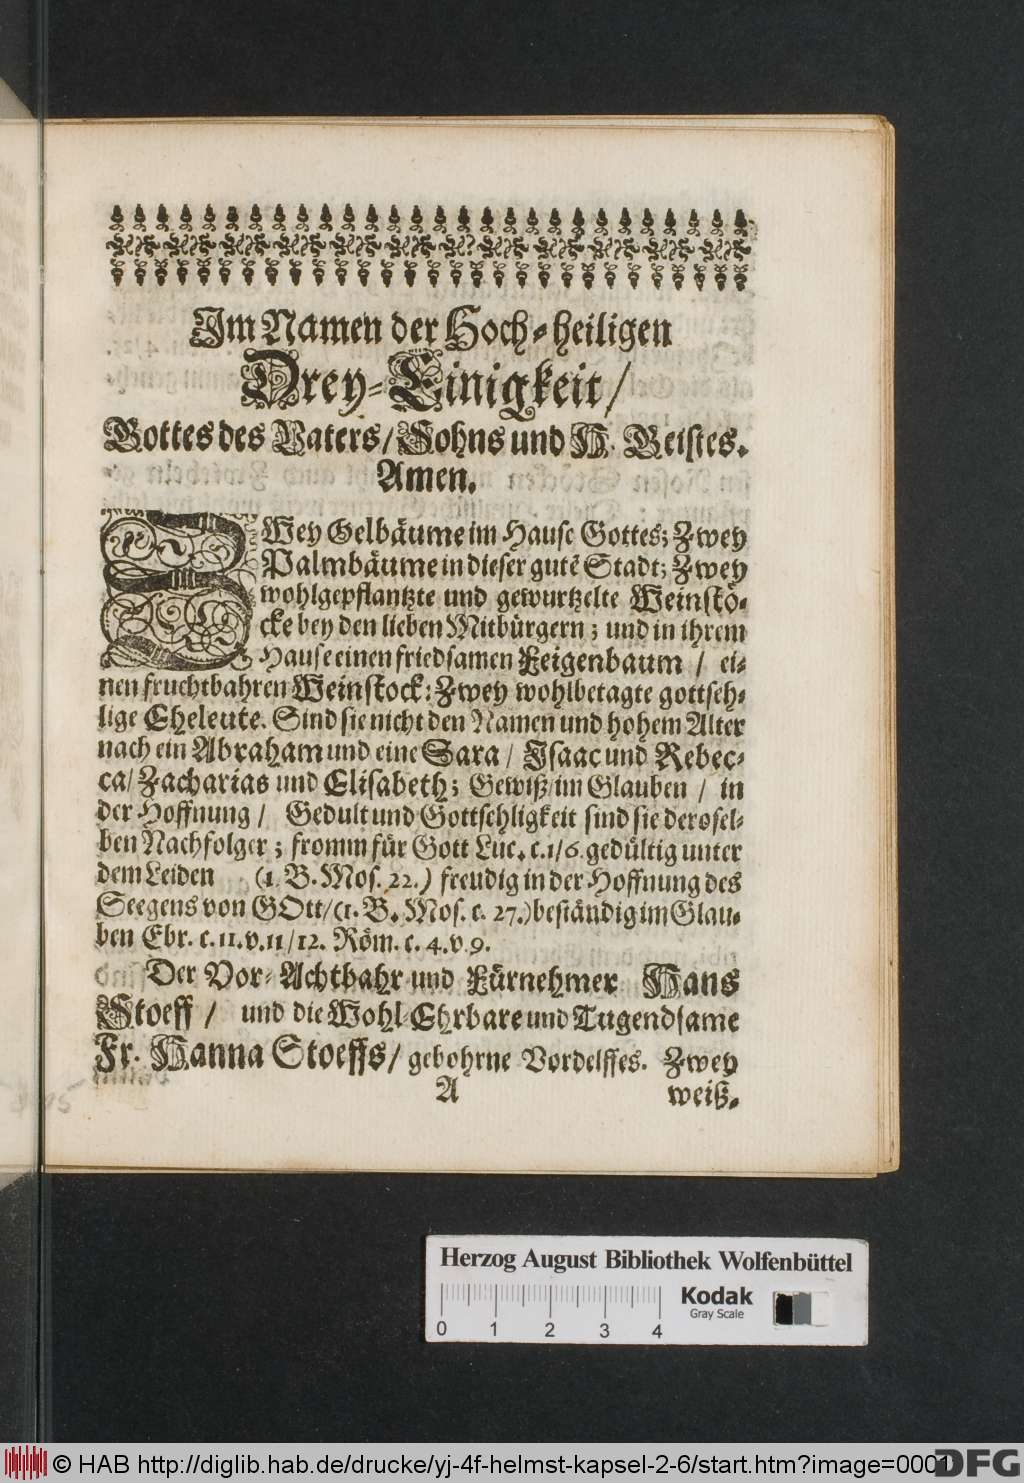 Im Namen der Hoch-heiligen
Drey-Einigkeit/
Gottes des Vaters/ Sohns und H. Geistes.
Amen.
ZWey Oelbäume im Hause Gottes; Zwey
Palmbäume in dieser gutẽ Stadt; Zwey
wohlgepflantzte und gewurtzelte Weinstö-
cke bey den lieben Mitbürgern; und in ihrem
Hause einen friedsamen Feigenbaum / ei-
nen fruchtbahren Weinstock: Zwey wohlbetagte gottseh-
lige Eheleute. Sind sie nicht den Namen und hohem Alter
nach ein Abraham und eine Sara / Isaac und Rebec-
ca/ Zacharias und Elisabeth; Gewiß/im Glauben / in
der Hoffnung / Gedult und Gottsehligkeit sind sie derosel-
ben Nachfolger; fromm für Gott Luc. c.1/6. gedültig unter
dem Leiden (1. B. Mos. 22.) freudig in der Hoffnung des
Seegens von GOtt/(1. B. Mos. c. 27.) beständig im Glau-
ben Ebr. c.11.v.11/12. Röm. c. 4.v.9.
Der Vor-Achtbahr und Fürnehmer Hans
Stoeff / und die Wohl-Ehrbare und Tugendsame
Fr. Hanna Stoeffs/ gebohrne Vordelffes. Zwey
A weiß-
Herzog August Bibliothek Wolfenbüttel
Kodak
Gray Scale
0 1 2 3 4
© HAB http://diglib.hab.de/drucke/yj-4f-helmst-kapsel-2-6/start.htm?image=0001
DFG